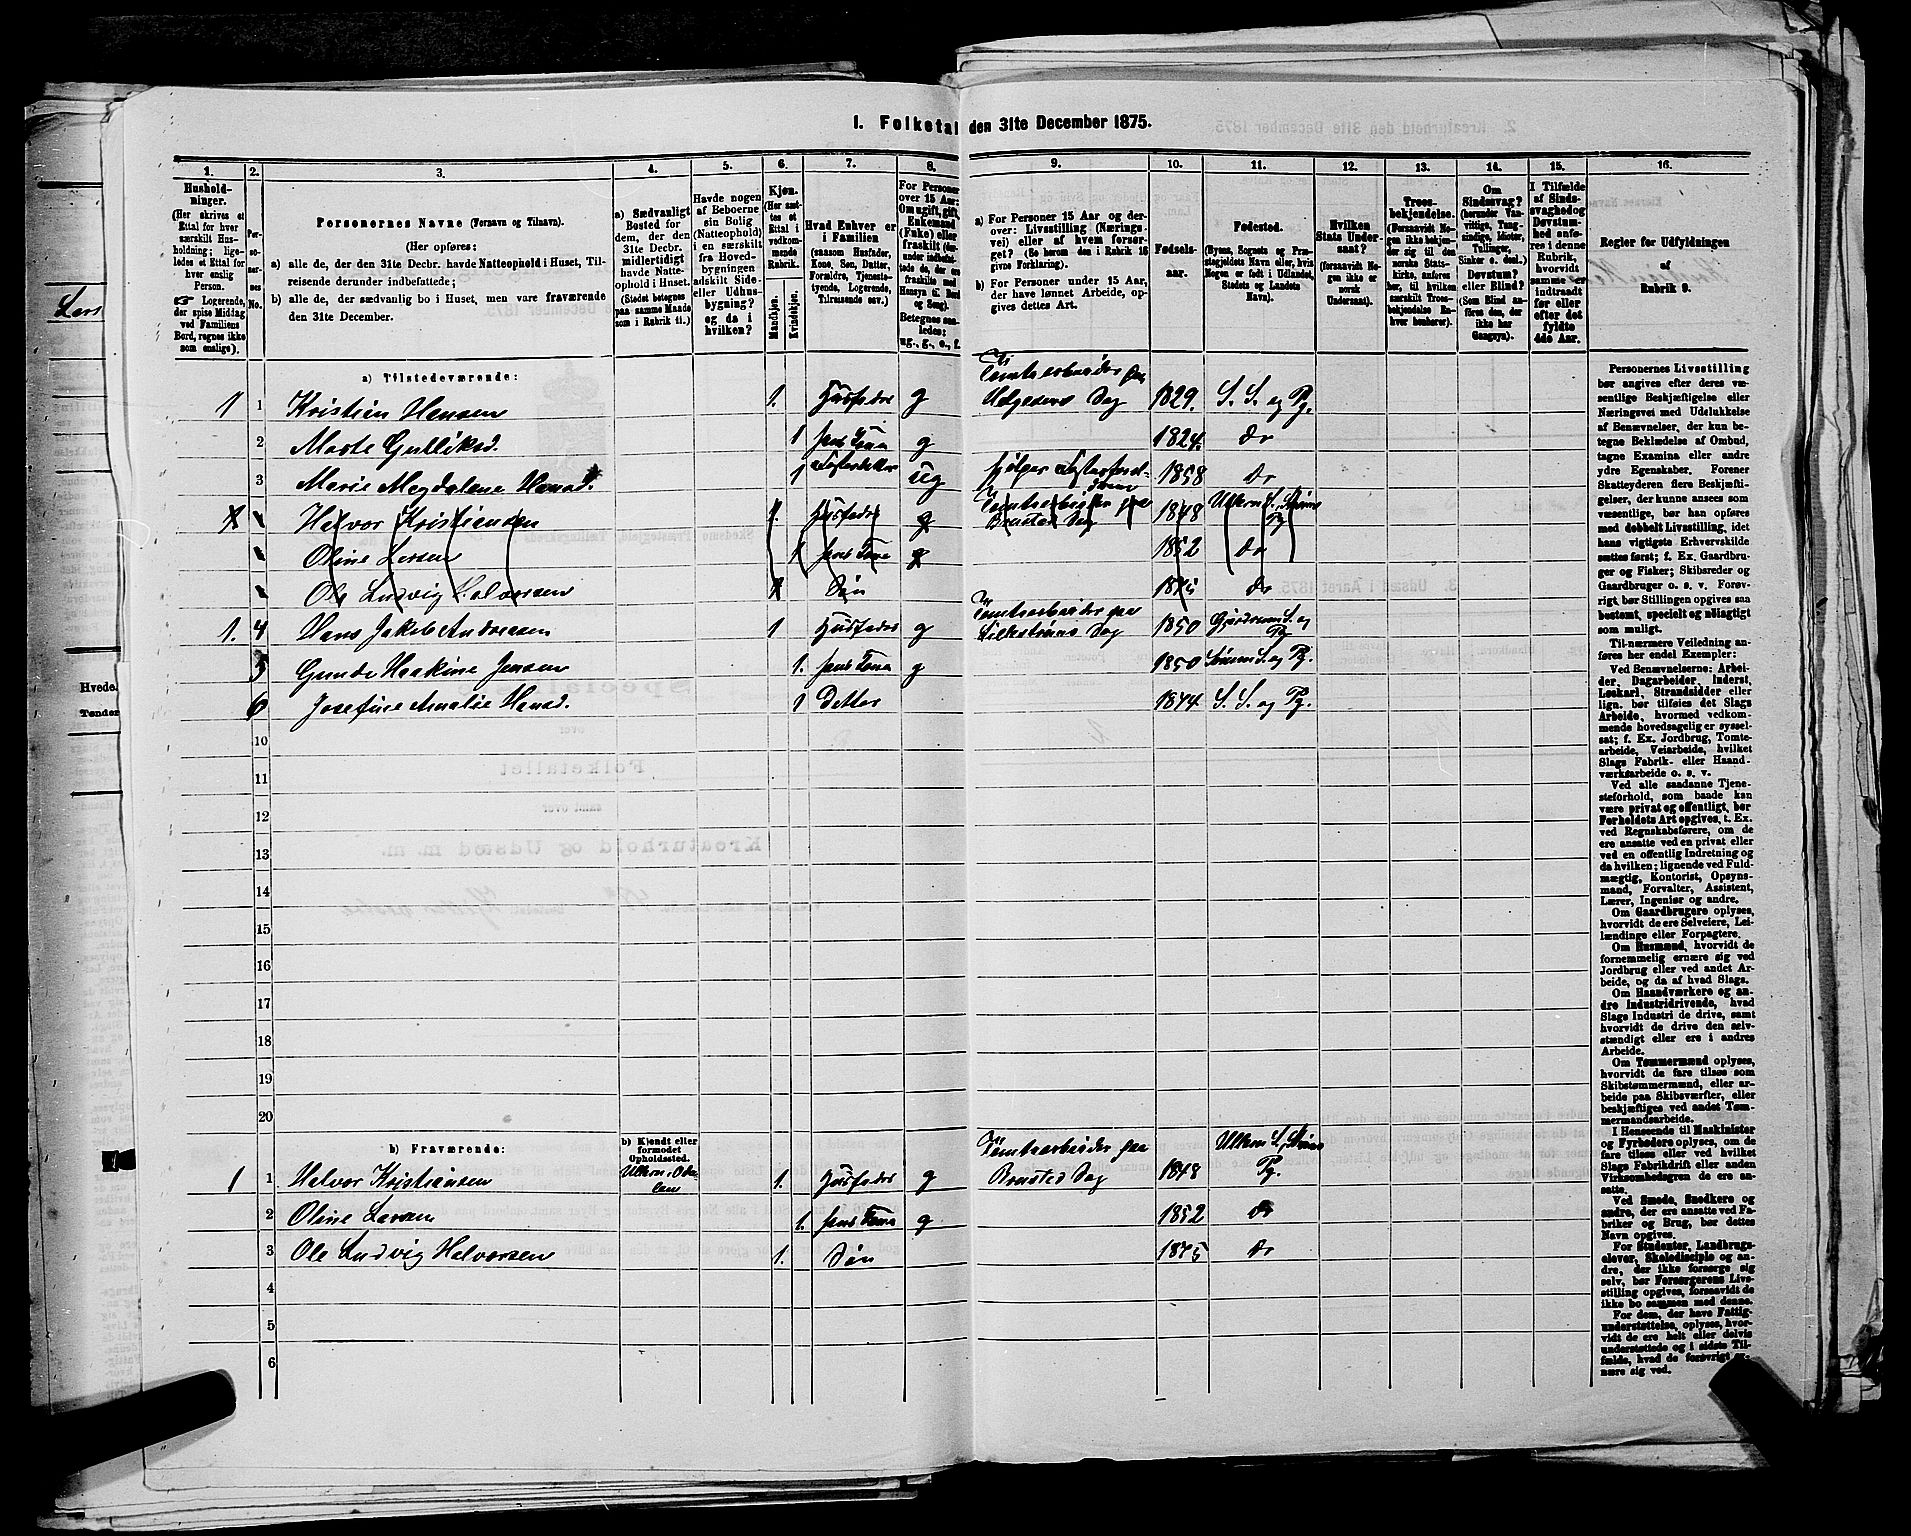 I. Folketal den 31te December 1875.
1. 2. 3. 4. 5. 6. 7. 8. 9. 10. 11. 12. 13. 14. 15. 16.
Hushold-
ninger.
(Her skrives et
Ettal for hver
særskilt Hus-
holdning; lige-
ledes et Ettal for
hver enslig
Person.
Logerende,
der spise Middag
ved Familiens
Bord, regnes ikke
som enslige).
Per-
soner-
nes
No.
Personernes Navne (Fornavn og Tilnavn).
(Her opføres:
a) alle de, der den 31te Decbr. havde Natteophold i Huset, Til-
reisende derunder indbefattede;
b) alle de, der sædvanlig bo i Huset, men vare fraværende
den 31te December.
a) Sædvanligt
Bosted for
dem, der den
31te Decbr.
midlertidigt
havde Natte-
ophold i Huset.
(Stedet betegnes
paa samme Maade
som i Rubrik 11.)
Havde nogen
af Beboerne
sin Bolig
(Natteophold)
i en særskilt
fra Hoved-
bygningen
adskilt Side-
eller Udhus-
bygning?
og da i
hvilken?
Kjøn.
(Her sæt-
tes et
Ettal i
vedkom-
mende
Rubrik.
Mandkjøn.
Kvindekjøn.
Hvad Enhver er
i Familien
(saasom Husfader,
Kone, Søn, Datter,
Forældre, Tjeneste-
tyende, Logerende,
Tilreisende osv.)
For Personer
over 15 Aar:
Om ugift, gift,
Enkemand
(Enke) eller
fraskilt
Betegnes saa-
ledes:
ug., g., e., f.
a) For Personer 15 Aar og der-
over: Livsstilling (Nærings-
vei) eller af hvem forsør-
get? (Se herom den i Rubrik 16
givne Forklaring).
b) For Personer under 15 Aar,
der have lønnet Arbeide, op-
gives dettes Art.
Fødsels-
aar.
Fødested.
(Byens, Sognets og Præ-
stegjeldets Navn eller, hvis
Nogen er født i Udlandet,
Stedets og Landets
Navn).
Hvilken
Stats Under-
saat?
(forsaavidt No-
gen ikke er
norsk
Undersaat).
Troes-
bekjendelse.
(Forsaavidt No-
gen ikke beken-
der sig til den
norske Stats-
kirke, anføres
her, til hvilket
særskilt Troes-
bekjendelse En-
hver henhører).
Om
Sindssvag?
(herunder Van-
vittige, Tung-
sindige, Idioter,
Tullinger,
Sinker o. desl.)
Døvstum?
eller Blind?
(Som Blind an-
føres den, der
ikke har
Gangsyn).
I Tilfælde
af Sinds-
svaghed og
Døvstum-
hed anfø-
res i denne
Rubrik,
hvorvidt
samme er
indtraadt
før eller
efter det
fyldte
4de Aar.
Regler for Udfyldningen
af
Rubrik 9.
a) Tilstedeværende:
1 1 Kristian Hansen 1. Husfader g Tomtearbeider paa Helgesens Sag 1829. S. S. og Pg.
2 Marte Gulliksd. 1 hans Kone g 1824. do
3 Marie Magdalene Hansd. 1 Fosterdatter ug hjelper Fosterforeldrene 1858 do
Halvor Kristiansen 1. Husfader g Tomtearbeider paa Brusted Sag 1848 Ulleren S., Strøms Pg
Oline Larsen 1 hans Kone g 1852 do
Ole Ludvig Halvorsen 1 Søn 1875 do
1. 4 Hans Jakob Andreasen 1 Husfader g Tomtearbeider paa Lillestrøms Sag 1850 Gjerdrum S. og Pg
5 Gunde Haakine Jensen 1. hans Kone g 1850 Sørum S. og Pg.
6 Josefine Amalie Hansd. 1 Datter 1874. S. S. og Pg.
10
11
12
13
14
15
16
17
18
19
20
b) Fraværende:
b) Kjendt eller
formodet
Opholdssted.
1 1 Halvor Kristiansen 1. Husfader g Tomtearbeider paa Brusted Sag 1848 Ulleren S., Strøms Pg.
2 Oline Larsen 1. hans Kone g 1852 do
3 Ole Ludvig Halvorsen 1. Søn 1875 do
4
5
6
Personernes Livsstilling
bør angives efter deres væ-
sentlige Beskjæftigelse eller
Næringsvei med Udelukkelse
af Benævnelser, der kun be-
tegne Beklædelse af Ombud,
tagne Examina eller andre
ydre Egenskaber. Forener
Skatteyderen flere Beskjæfti-
gelser, der kunne ansees som
væsentlige, bør han opføres
med dobbelt Livsstilling, idet
hans vigtigste Erhvervskilde
sættes først; f. Ex. Gaardbru-
ger og Fisker; Skibsreder og
Gaardbruger o. s. v. Forøv-
rigt bør Stillingen opgives saa
bestemt, specielt og nøiagtigt
som muligt.
Til nærmere Veiledning an-
føres her endel Exempler:
Ved Benævnelserne: Arbei-
der, Dagarbeider, Inderst,
Løskarl, Strandsidder eller
lign. bør tilføies det Slags
Arbeide, hvormed vedkom-
mende hovedsagelig er syssel-
sat; f. Ex. Jordbrug, Tomte-
arbeide, Veiarbeide, hvilket
Slags Fabrik- eller Haand-
værksarbeide o. s. v.
Ved alle saadanne Tjene-
steforhold, som baade kan
være privat og offentligt, bør
Forholdets Art opgives, t. Ex.
ved Regnskabsførere, om de
ere ansatte ved en privat eller
ved en offentlig Indretning og
da hvilken; lignende ved Fuld-
mægtig, Kontorist, Opsyns-
mand, Forvalter, Assistent,
Lærer, Ingeniør og andre.
Om Gaardbrugere oplyses,
hvorvidt de ere Selveiere, Lei-
lændinge eller Forpagtere.
Om Husmænd, hvorvidt de
fornemmelig ernære sig ved
Jordbrug eller ved andet Ar-
beide, og da af hvad Slags.
Om Haandværkere og an-
dre Industridrivende, hvad
Slags Industri de drive, samt
hvorvidt de drive den selv-
stændigt eller ere i andres
Arbeide.
Om Tømmermænd oplyses,
hvorvidt de fare tilsøs som
Skibstømmermænd, eller ar-
beide paa Skibsværfter, eller
beskjæftiges ved andet Tøm-
mermandsarbeide.
I Henseende til Maskinister
og Fyrbødere oplyses, om de
fare tilsøs eller ved hvilket
Slags Fabrikdrift eller anden
Virksomhedsgren de ere an-
satte.
Ved Smede, Snedkere og
andre, der ere ansatte ved Fa-
briker og Brug, bør dettes
Navn opgives.
For Studenter, Landbrugs-
elever, Skoledisciple og an-
dre, der ikke forsørge sig
selv, bør Forsørgerens Livs-
stilling opgives, forsaavidt de
ikke bo sammen med denne.
For dem, der have Fattig-
understøttelse, oplyses, hvor-
vidt de ere helt eller delvis
understøttede og i sidste Til-
fælde, hvad de forøvrigt er-
nære sig ved.
Lars
Hvede.
Tønder